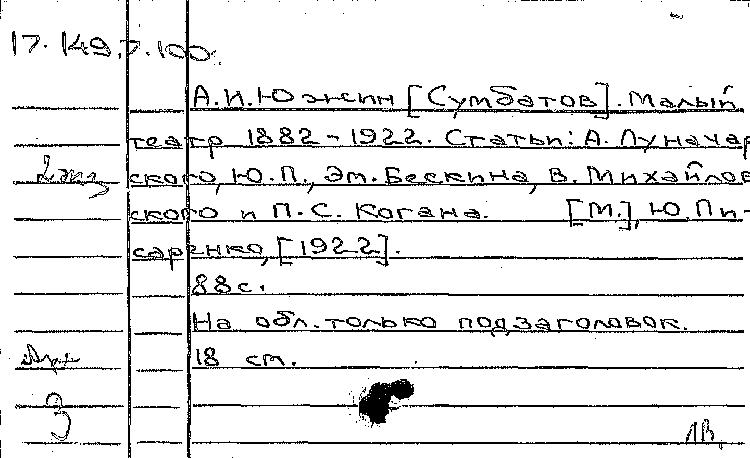 17.149.7.100.
А.И.Южин [Сумбатов]. Малый
театр 1882-1922. Статьи: А. Луначар
2 экз
ского, Ю.П., Эм.Бескина, В. Михайлов
ского и П.С. Когана. [М.], Ю.Пи-
саренко, [1922].
88с.
На обл. только подзаголовок.
18 см.
3